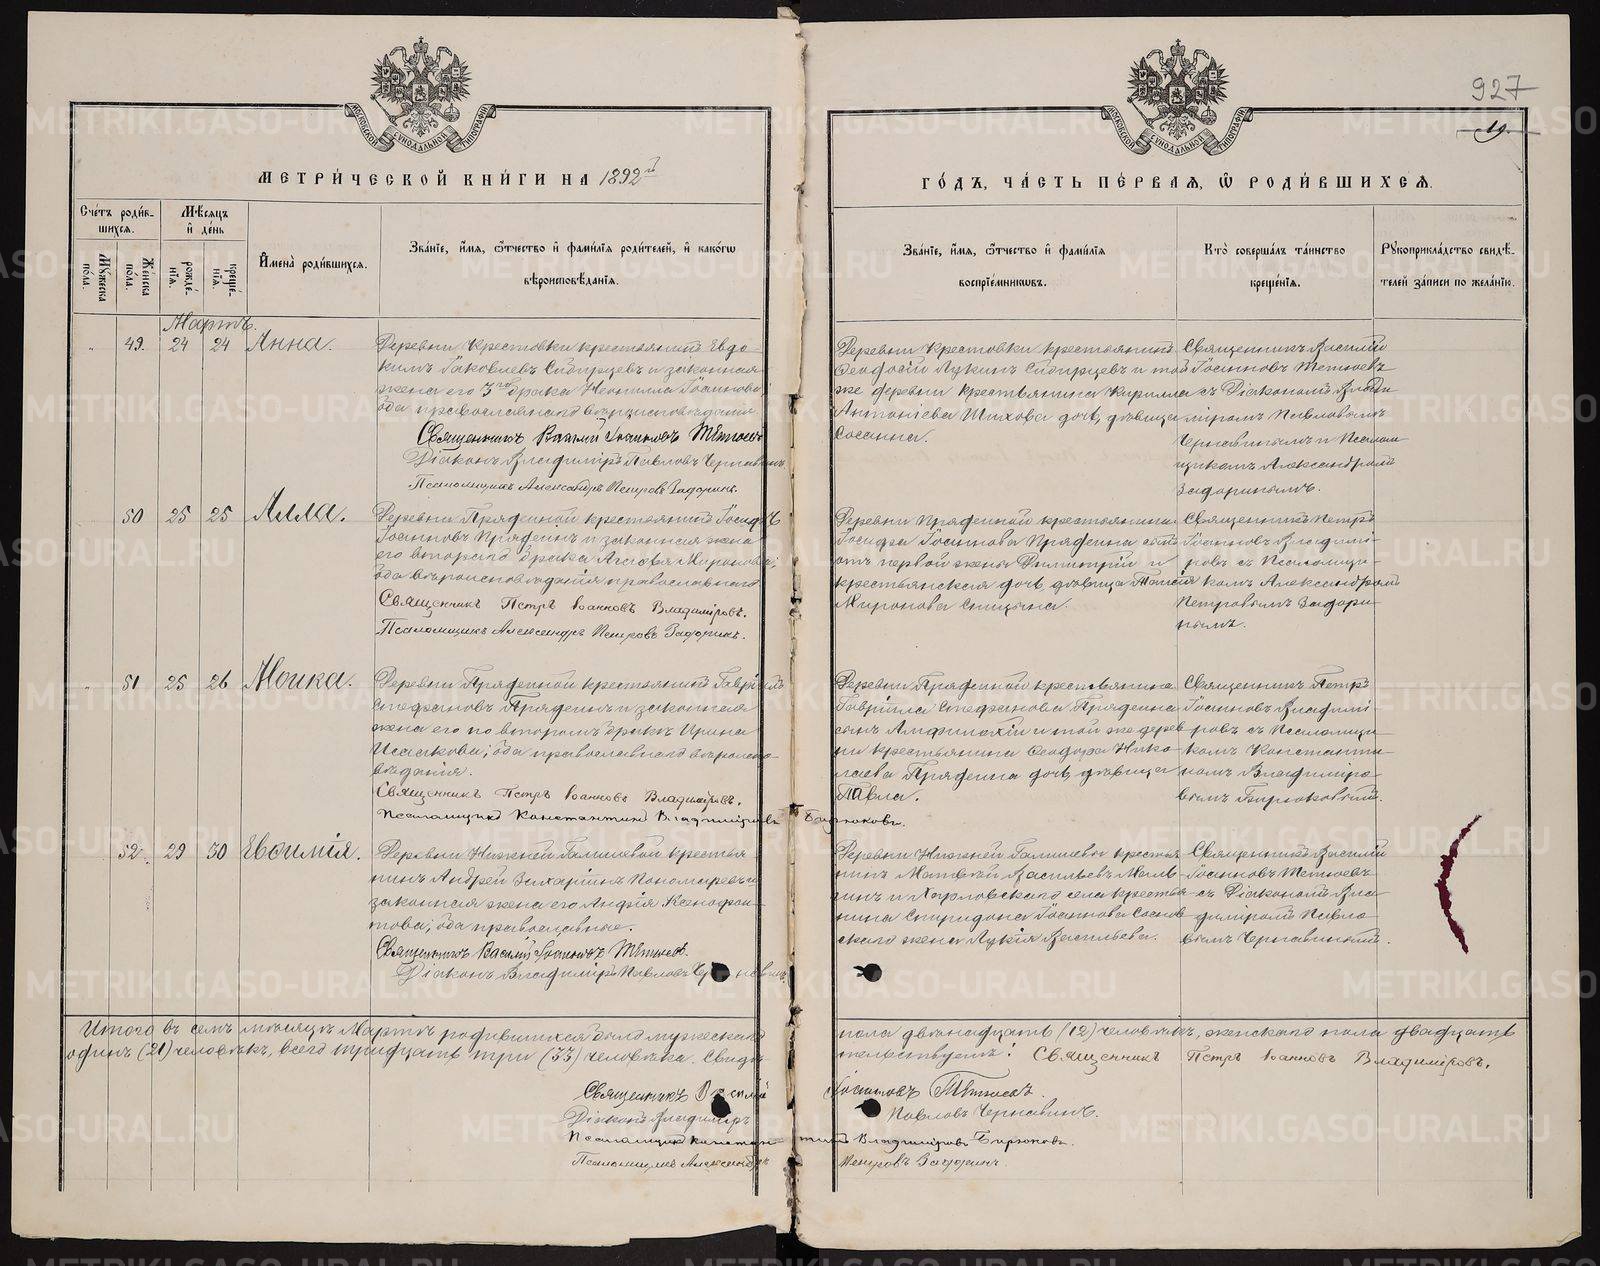 927
19.
МОСКОВСКОЙ СѴНОДАЛЬНОЙ ТИПОГРАФІИ
МОСКОВСКОЙ СѴНОДАЛЬНОЙ ТИПОГРАФІИ
МЕТРИ́ЧЕСКОЙ КНИ́ГИ НА 1892й
ГО́ДЪ, ЧА́СТЬ ПЕ́РВАЯ, Ѿ РОДИ́ВШИХСЯ.
Сче́тъ роди́в-
шихся.
Мꙋжеска по́ла.
Же́нска по́ла.
Мѣ́сяцъ
и҆ де́нь
рожде́-
нїя.
креще́-
нїя.
И҆мена̀ роди́вшихся.
Зва́нїе, и҆́мя, ѻ҆́тчество и҆ фами́лїя роди́телей, и҆ како́гѡ
вѣроисповѣ́данїя.
Зва́нїе, и҆́мя, ѻ҆́тчество и҆ фами́лїя
воспрїе́мникѡвъ.
Кто̀ соверша́лъ та́инство
креще́нїя.
Рꙋкоприкла́дство свидѣ́-
телей за́писи по жела́нїю.
Мартъ.
49. 24 24 Анна.
Деревни Крестовки крестьянинъ Евдо-
кимъ Іаковлевъ Сибирцевъ и законная
жена его 3го брака Неонилла Іоаннова;
оба православнаго вѣроисповѣданія
Священникъ Василій Іоанновъ Тѣтюевъ
Діаконъ Владиміръ Павловъ Чернавинъ
Псаломщикъ Александръ Петровъ Задоринъ.
Деревни Крестовки крестьянинъ
Ѳеодосій Лукинъ Сибирцевъ и той
же деревни крестьянина Кирилла
Антоніева Шихова дочь, дѣвица
Сосанна.
Священникъ Василій
Іоанновъ Тетюевъ
съ Діакономъ Влади-
міромъ Павловымъ
Чернавинымъ и Псалом-
щикомъ Александромъ
Задоринымъ.
50 25 25 Алла.
Деревни Пряденной крестьянинъ Іосифъ
Іоанновъ Пряденъ и законная жена
его втораго брака Агафья Миронова;
оба вѣроисповѣданія православнаго
Священникъ Петръ Іоанновъ Владиміровъ.
Псаломщикъ Александръ Петровъ Задоринъ.
Деревни Пряденной крестьянина
Іосифа Іоаннова Прядеина сынъ
отъ первой жены Димитрій и
крестьянская дочь, дѣвица Таисія
Миронова Спицына.
Священникъ Петръ
Іоанновъ Владимі-
ровъ съ Псаломщи-
комъ Александромъ
Петровымъ Задори-
нымъ.
51 25 26 Моика.
Деревни Пряденной крестьянинъ Гавріилъ
Стефановъ Прядеинъ и законная
жена его по второмъ бракѣ Ирина
Исаакова; оба православнаго вѣроиспо-
вѣданія.
Священникъ Петръ Іоанновъ Владиміровъ.
Псаломщикъ Константинъ Владиміровъ Бирюковъ.
Деревни Пряденной крестьянина
Гавріила Стефанова Прядеина
сынъ Амфилохій и той же дерев-
ни крестьянина Ѳеодора Нико-
лаева Прядеина дочь, дѣвица
Павла.
Священникъ Петръ
Іоанновъ Владимі-
ровъ съ Псаломщи-
комъ Константи-
номъ Владиміро-
вымъ Бирюковымъ.
52. 29 30 Евѳимія.
Деревни Нижней Галишевой крестья
нинъ Андрей Захаріинъ Пономаревъ и
законная жена его Анфія Ксенофон-
това; оба православные.
Священникъ Василій Іоанновъ Тѣтюевъ.
Діаконъ Владиміръ Павловъ Чернавинъ
Деревни Нижней Галишевой крестья
нинъ Матвѣй Васильевъ Маль-
гинъ и Харловскаго села крестья-
нина Спиридона Іоаннова Соснов-
скаго жена Лукія Васильева.
Священникъ Василій
Іоанновъ Тетюевъ
съ Діакономъ Вла-
диміромъ Павло-
вымъ Чернавинымъ.
Итого въ семъ мѣсяцѣ Мартѣ родившихся было мужескаго пола двѣнадцать (12) человѣкъ, женскаго пола двадцать
одинъ (21) человѣкъ, всего тридцать три (33) человѣка. Свидѣтельствуемъ: Священникъ Петръ Іоанновъ Владиміровъ.
Священникъ Василій Іоанновъ Тѣтюевъ.
Діаконъ Владиміръ Павловъ Чернавинъ.
Псаломщикъ Константинъ Владиміровъ Бирюковъ.
Псаломщикъ Александръ Петровъ Задоринъ.
METRIKI.GASO-URAL.RU